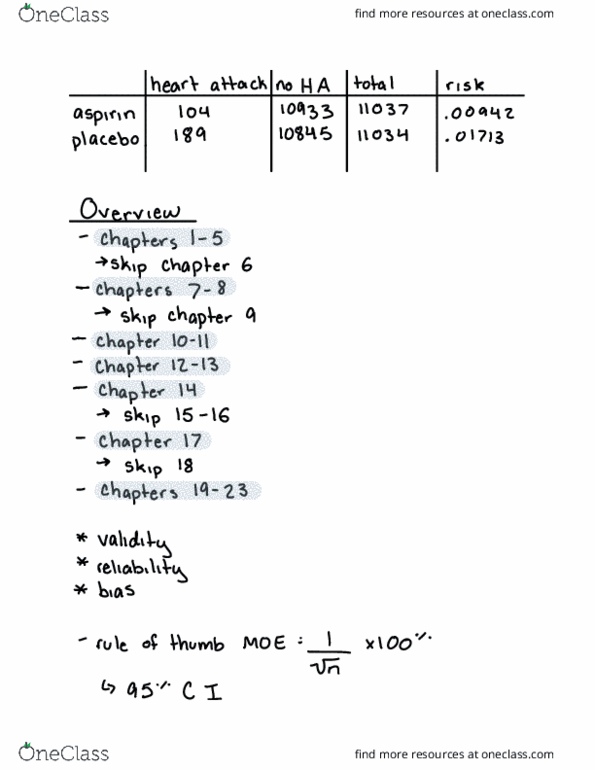 OneClass
find more resources at oneclass.com
heart attack no HA total risk
aspirin 104 10933 11037 .00942
placebo 189 10845 11034 .01713
Overview
- chapters 1-5
→ skip chapter 6
- chapters 7-8
→ skip chapter 9
- chapter 10-11
- chapter 12-13
- chapter 14
→ skip 15-16
- chapter 17
→ skip 18
- chapters 19-23
* validity
* reliability
* bias
- rule of thumb MOE : 1/√n x100%
↳ 95% CI
OneClass
find more resources at oneclass.com